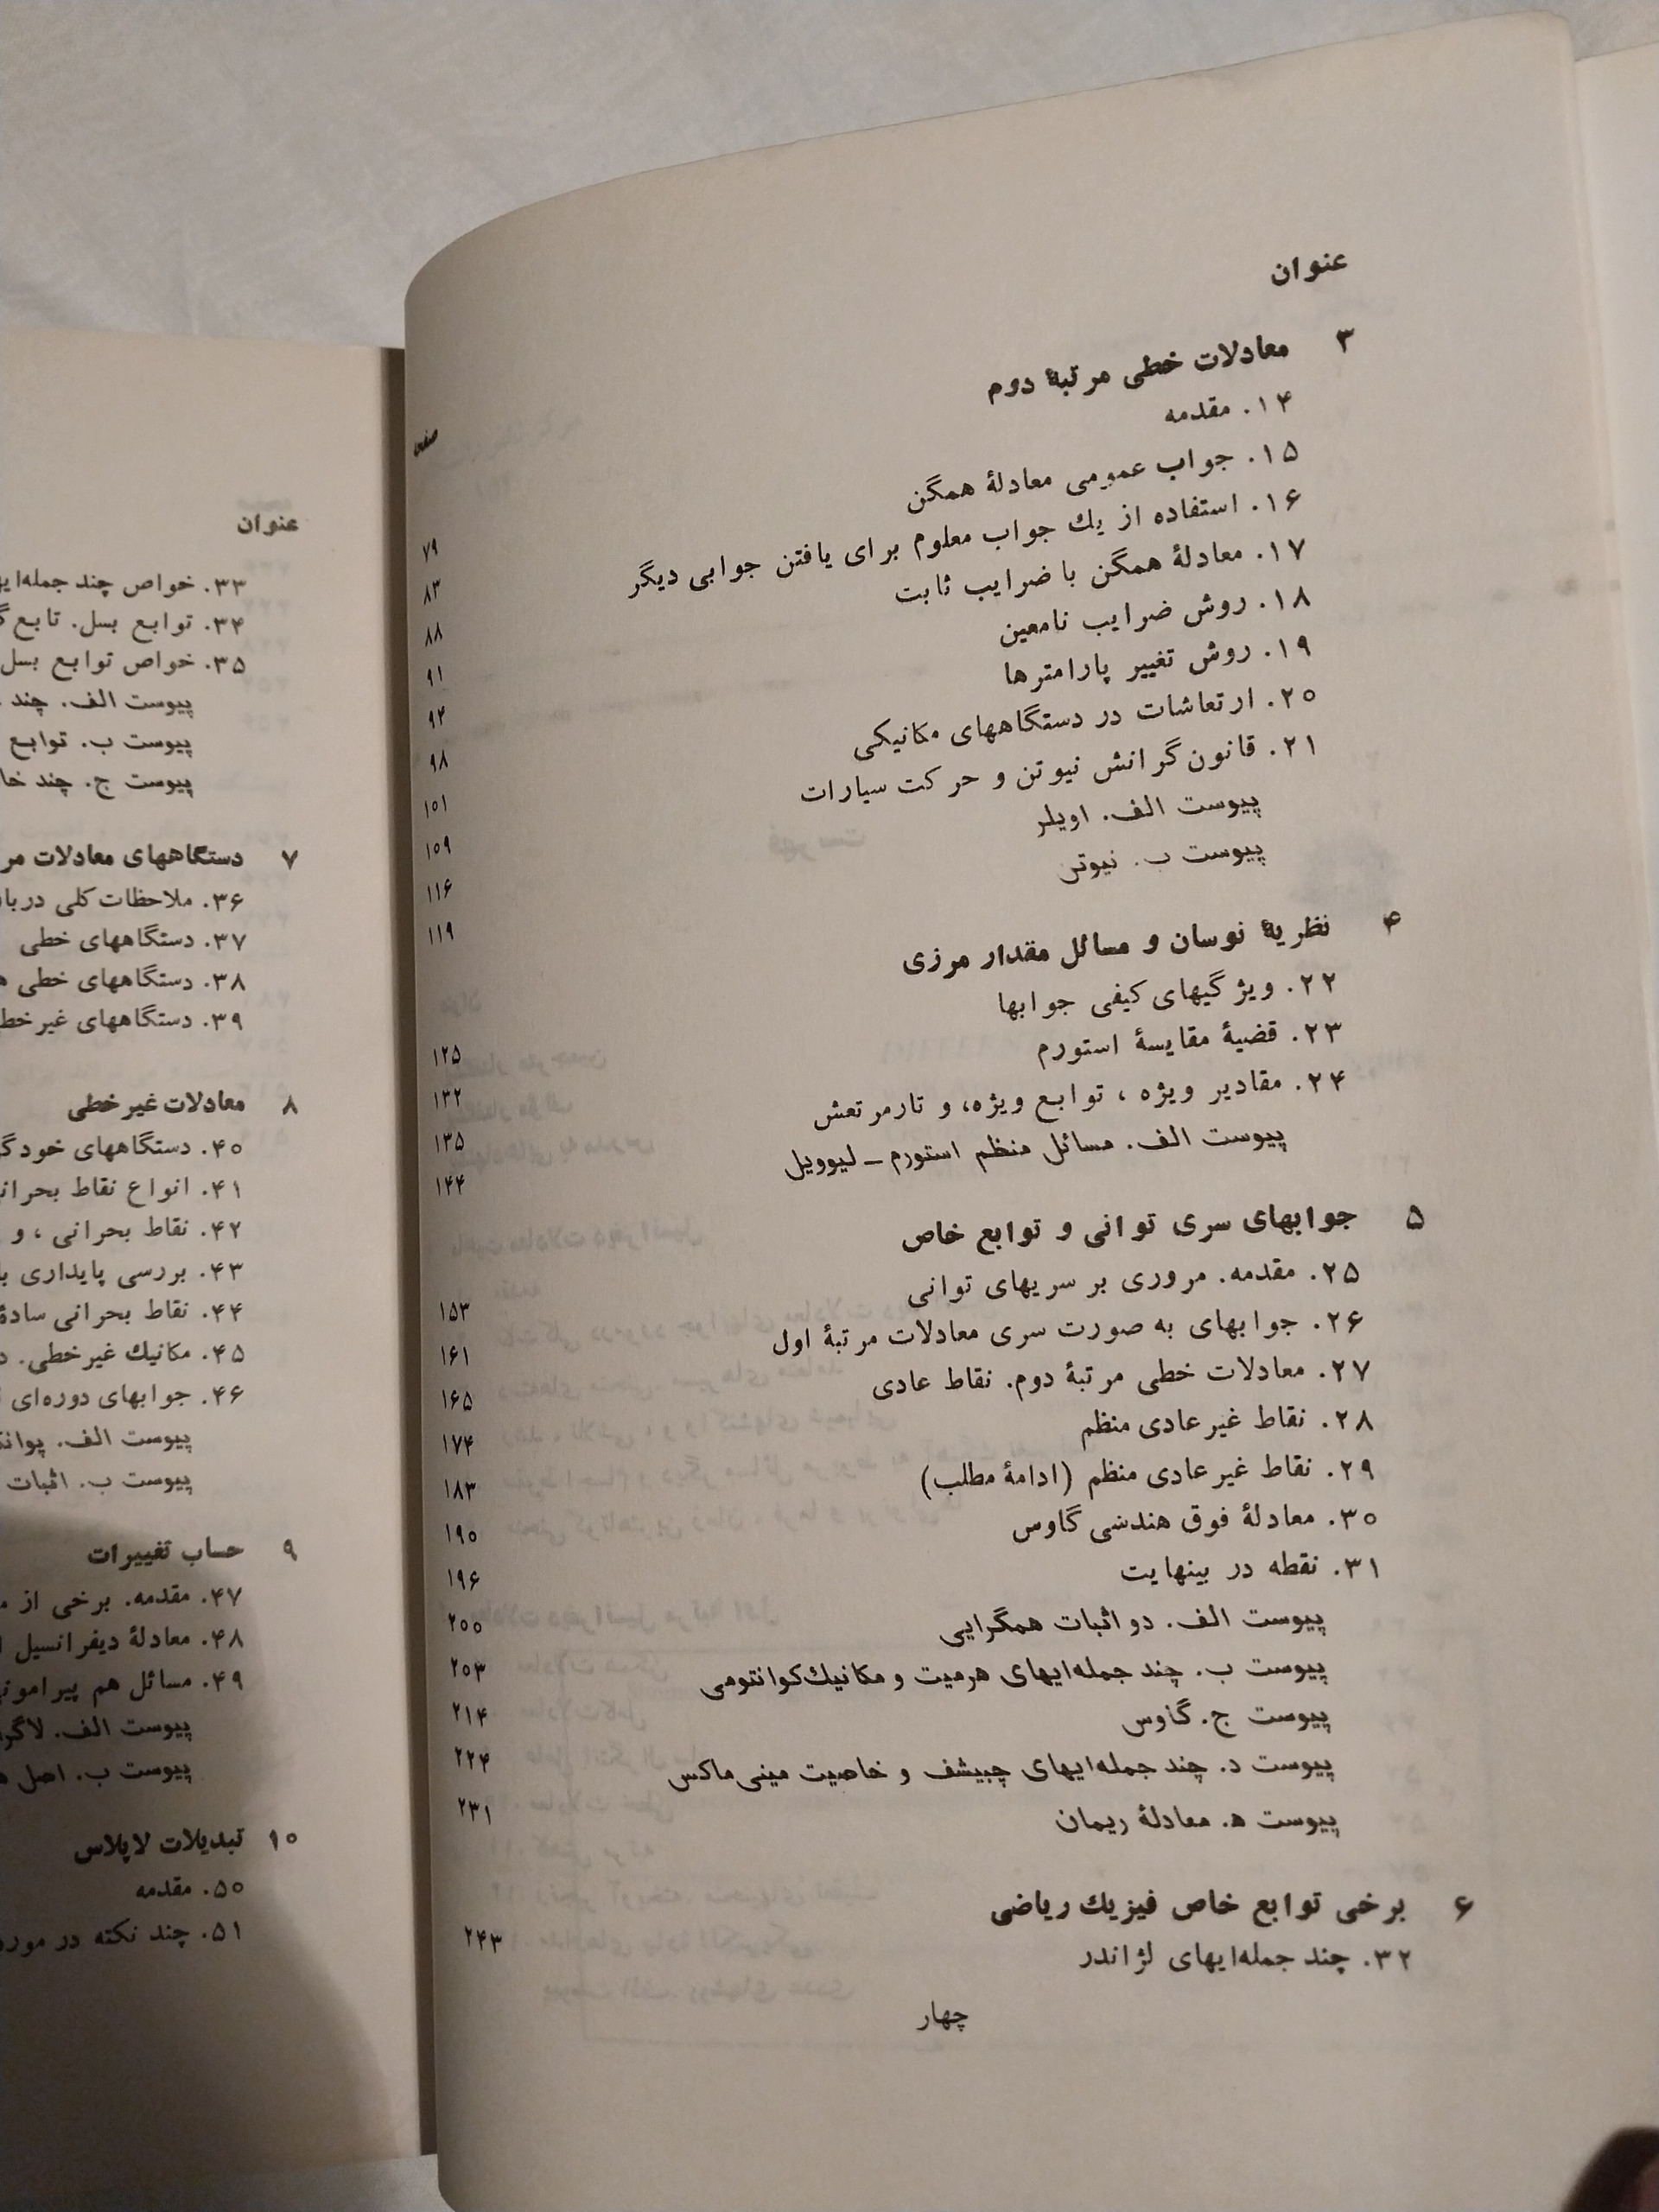 عنوان
صفحه
۳ معادلات خطی مرتبهٔ دوم
۱۴. مقدمه ۷۹
۱۵. جواب عمومی معادلهٔ همگن ۸۳
۱۶. استفاده از یك جواب معلوم برای یافتن جوابی دیگر ۸۸
۱۷. معادلهٔ همگن با ضرایب ثابت ۹۱
۱۸. روش ضرایب نامعین ۹۴
۱۹. روش تغییر پارامترها ۹۸
۲۰. ارتعاشات در دستگاههای مکانیکی ۱۰۱
۲۱. قانون گرانش نیوتن و حرکت سیارات ۱۰۹
پیوست الف. اویلر ۱۱۶
پیوست ب. نیوتن ۱۱۹
۴ نظریهٔ نوسان و مسائل مقدار مرزی
۲۲. ویژگیهای کیفی جوابها ۱۲۵
۲۳. قضیهٔ مقایسهٔ استورم ۱۳۲
۲۴. مقادیر ویژه، توابع ویژه، و تار مرتعش ۱۳۵
پیوست الف. مسائل منظم استورم ـ لیوویل ۱۴۴
۵ جوابهای سری توانی و توابع خاص
۲۵. مقدمه. مروری بر سریهای توانی ۱۵۳
۲۶. جوابهای به صورت سری معادلات مرتبهٔ اول ۱۶۱
۲۷. معادلات خطی مرتبهٔ دوم. نقاط عادی ۱۶۵
۲۸. نقاط غیرعادی منظم ۱۷۴
۲۹. نقاط غیرعادی منظم (ادامهٔ مطلب) ۱۸۳
۳۰. معادلهٔ فوق هندسی گاوس ۱۹۰
۳۱. نقطه در بینهایت ۱۹۶
پیوست الف. دو اثبات همگرایی ۲۰۰
پیوست ب. چند جمله‌ایهای هرمیت و مکانیك کوانتومی ۲۰۳
پیوست ج. گاوس ۲۱۴
پیوست د. چند جمله‌ایهای چبیشف و خاصیت مینی‌ماکس ۲۲۴
پیوست ه. معادلهٔ ریمان ۲۳۱
۶ برخی توابع خاص فیزیك ریاضی
۳۲. چند جمله‌ایهای لژاندر ۲۴۳
چهار
عنوان
۳۳. خواص چند
۳۴. توابع بسل. تابع
۳۵. خواص توابع بسل
پیوست الف. چند
پیوست ب. توابع
پیوست ج. چند
۷ دستگاههای معادلات
۳۶. ملاحظات کلی
۳۷. دستگاههای خطی
۳۸. دستگاههای خطی
۳۹. دستگاههای
۸ معادلات غیرخطی
۴۰. دستگاههای
۴۱. انواع نقاط
۴۲. نقاط بحرانی، و
۴۳. بررسی پایداری
۴۴. نقاط بحرانی
۴۵. مکانیك غیرخطی.
۴۶. جوابهای دوره‌ای
پیوست الف.
پیوست ب. اثبات
۹ حساب تغییرات
۴۷. مقدمه. برخی از
۴۸. معادلهٔ دیفرانسیل
۴۹. مسائل هم
پیوست الف.
پیوست ب. اصل
۱۰ تبدیلات لاپلاس
۵۰. مقدمه
۵۱. چند نکته در